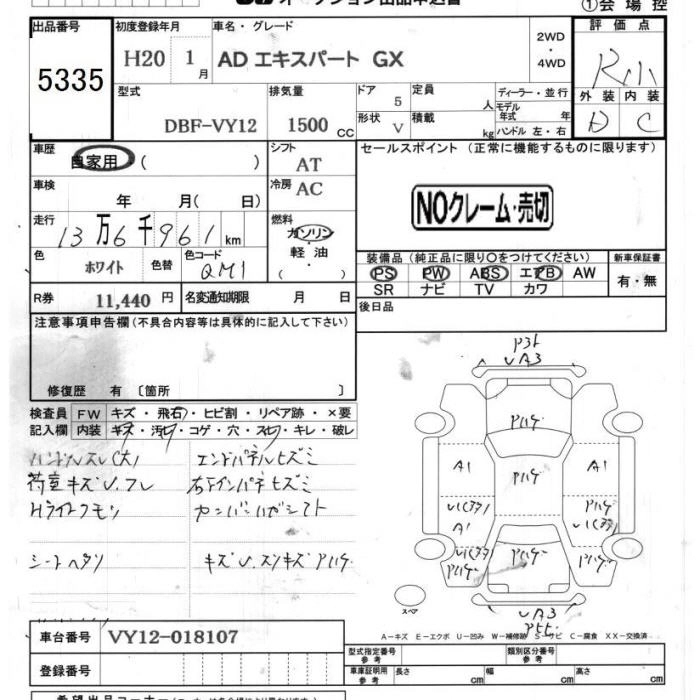 ①会場控
出品番号
5335
初度登録年月
H20 1月
車名・グレード
AD エキスパート GX
2WD
・
4WD
評価点
R
外装 内装
D C
型式
DBF-VY12
排気量
1500 CC
ドア
5
形状
V
定員
人
積載
kg
ディーラー・並行
モデル年式 年
ハンドル 左・右
車歴
自家用 ( )
シフト
AT
車検
年 月( 日)
冷房
AC
走行
13万6千961km
燃料
ガソリン
・
軽油
( )
色
ホワイト
色替
色コード
QM1
R券 11,440 円
名変通知期限 月 日
セールスポイント (正常に機能するものに限ります)
NOクレーム・売切
装備品 (純正品に限り○をつけてください)
PS PW ABS エアB AW
SR ナビ TV カワ
新車保証書
有・無
後日品
注意事項申告欄(不具合内容等は具体的に記入して下さい)
修復歴 有 〔箇所 〕
検査員 FW キズ・飛石・ヒビ割・リペア跡・×要
記入欄 内装 キズ・汚・コゲ・穴・スレ・キレ・破レ
ハンドルスレ(大) エンドパネルヒズミ
荷室キズU.スレ
Hライトクモリ
シートヘタリ
UA3
Pハゲ
A1 Pハゲ A1
U1(33) Pハゲ
A1 U1(33)
U1(33) Pハゲ Pハゲ
Pハゲ
スペア
UA3
A-キズ E-エクボ U-凹み W-補修跡 S-サビ C-腐食 XX-交換済
車台番号 VY12-018107
登録番号
型式指定番号 参考
類別区分番号 参考
車庫証明用 参考 長さ cm 幅 cm 高さ cm